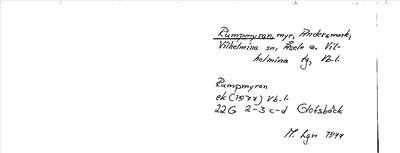 Rumpmyran, myr, Andersmark,
Vilhelmina sn, Åsele o. Vil-
helmina tg, Vb.l.
Rumpmyran
ek (1977) Vb.l.
22G 2-3 c-dGlofsbäck
M. Lgn 1977